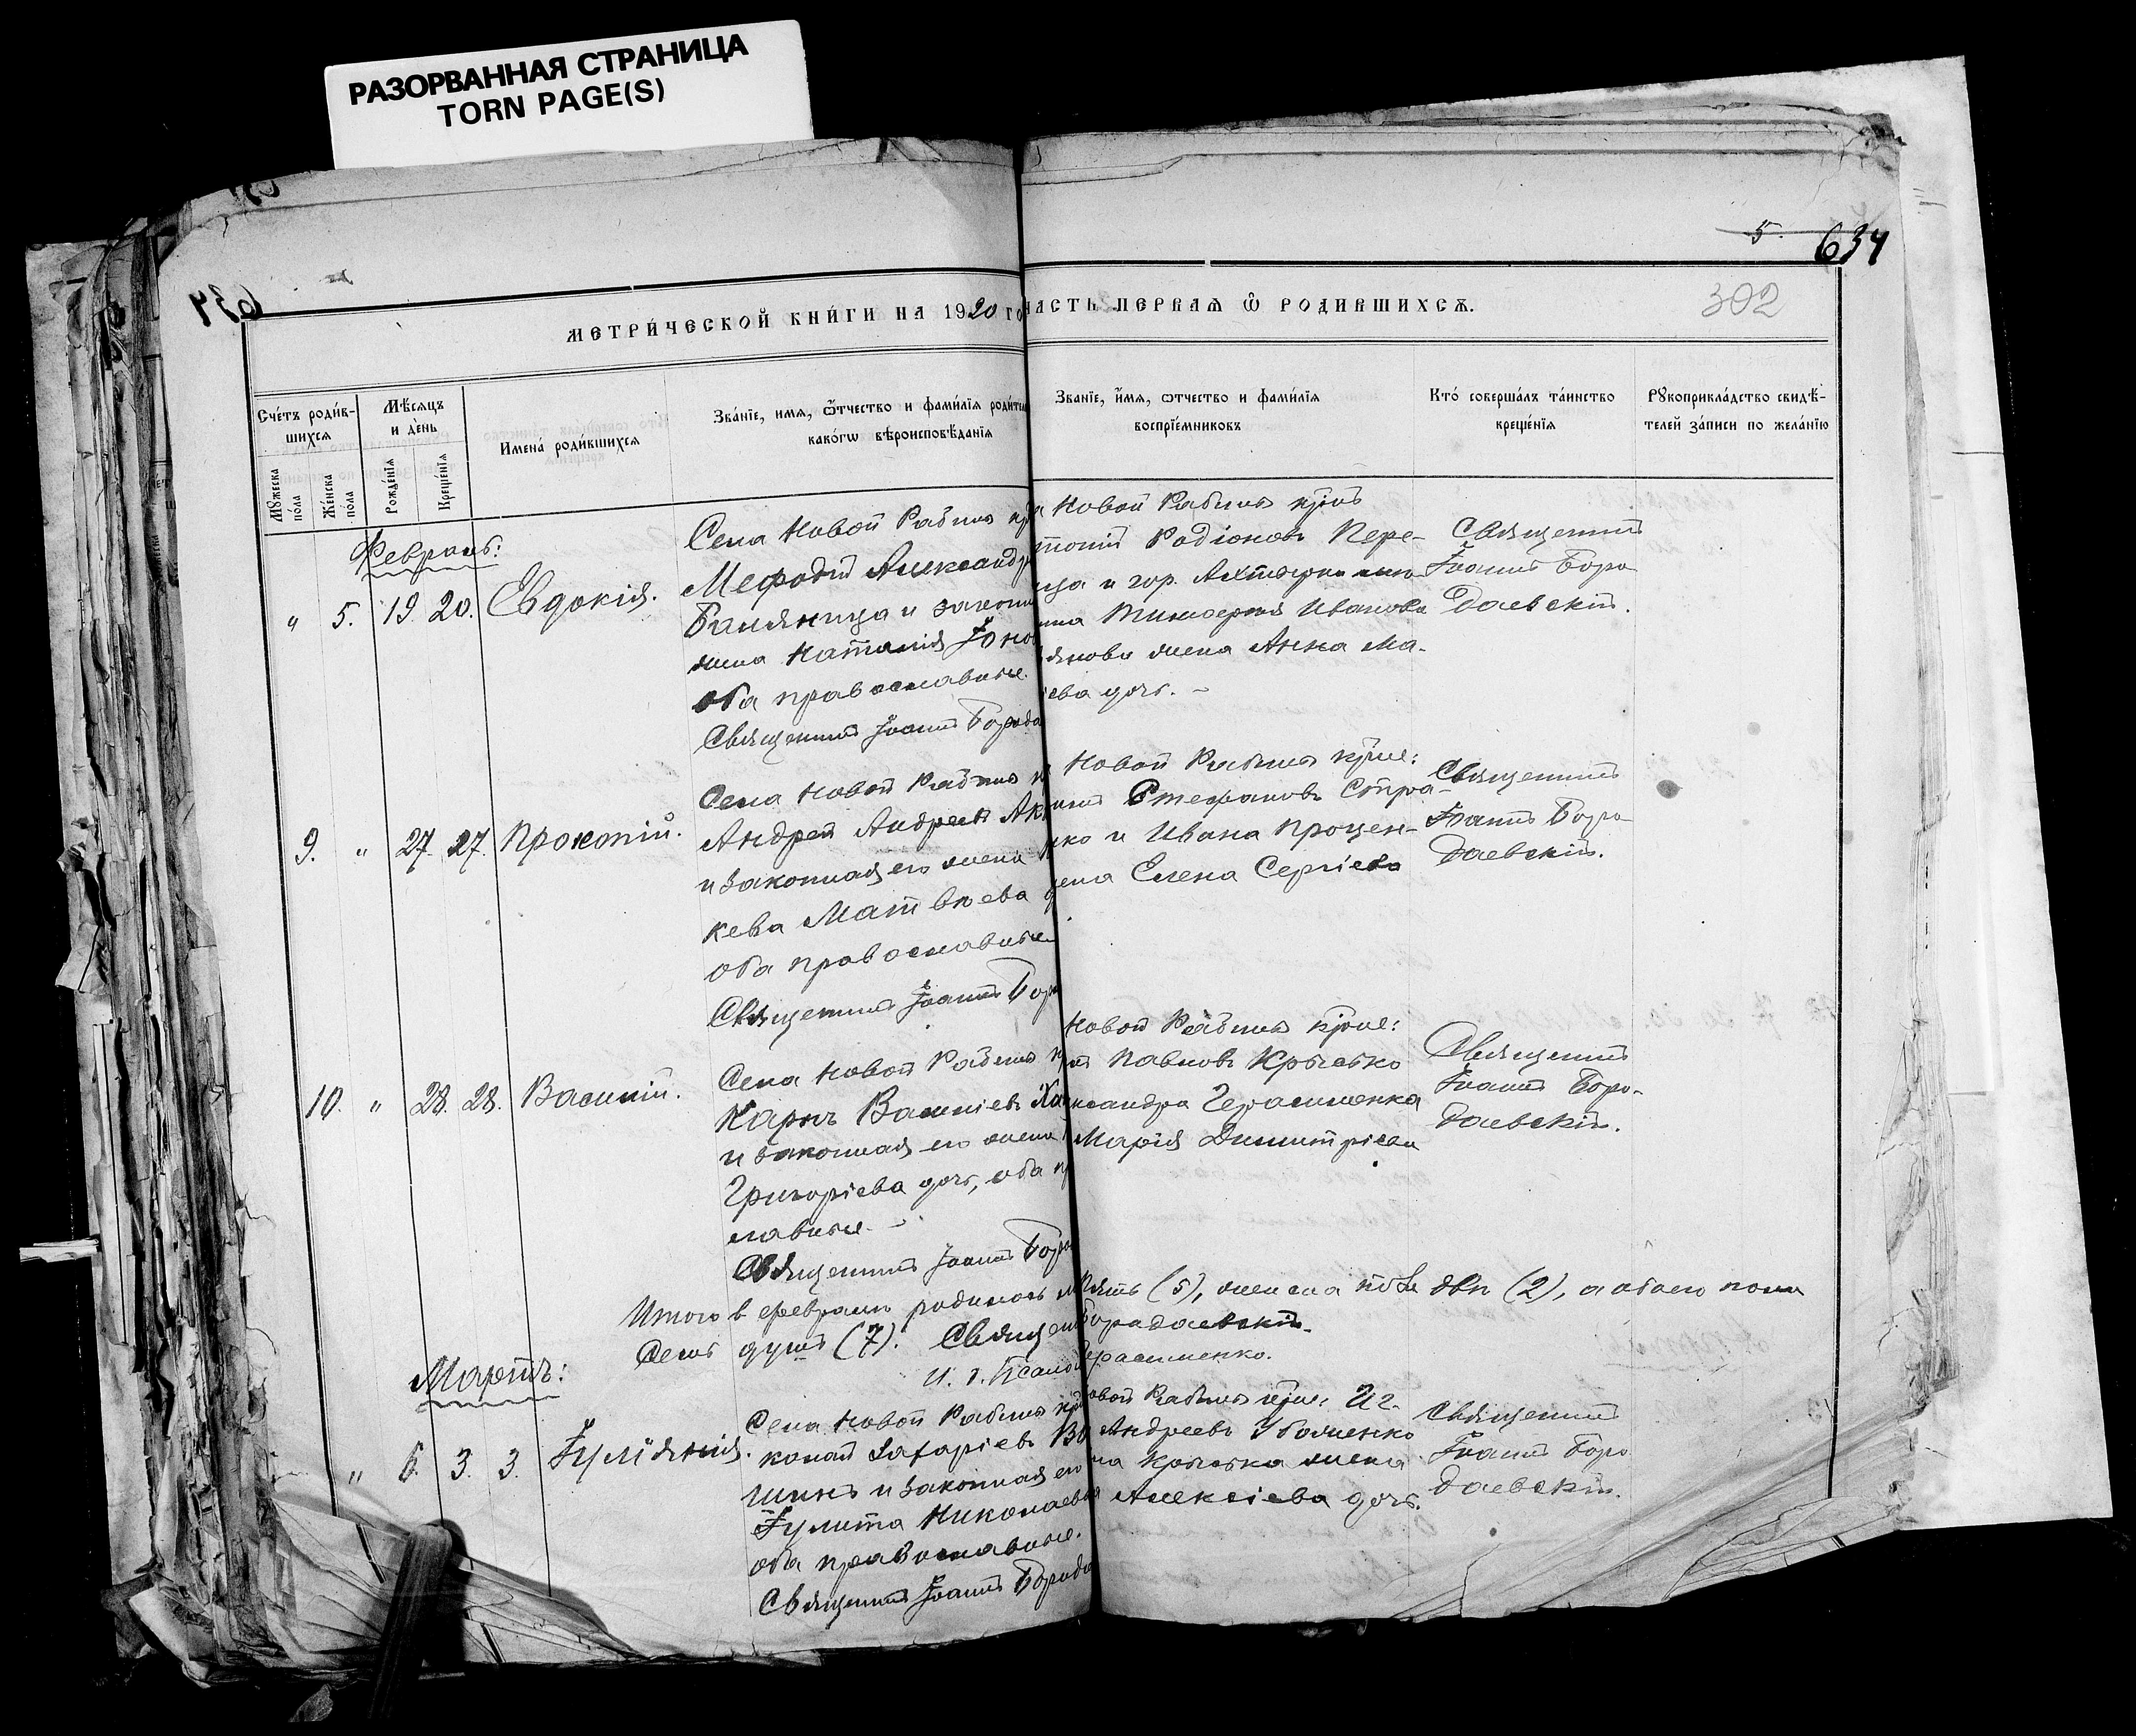 РАЗОРВАННАЯ СТРАНИЦА
TORN PAGE(S)
5. 634
302
МЕТРИ́ЧЕСКОЙ КНИ́ГИ НА 1920 ГО
ЧАСТЬ ПЕРВАЯ Ѡ РОДИВШИХСЯ.
Сче́тъ роди́в-
шихся
Мꙋжеска по́ла
Же́нска по́ла
Мѣ́сяцъ
и день
Рожде́нїя
Креще́нїя
Имена̀ роди́вшихся
Зва́нїе, имя, ѻ҆́тчество и фами́лїя роди́те
како́гѡ вѣроисповѣ́данїя
Зва́нїе, и҆́мя, ѻтчество и фами́лїя
воспрїе́мниковъ
Кто́ соверша́лъ та́инство
креще́нїя
Рꙋкоприкла́дство свидѣ́-
телей за́писи по жела́нїю
Февраль:
" 5. 19. 20. Евдокія.
Села Новой Рабины
Мефодій Александр
Баляница и законн
жена Наталія Іоно
оба православные.
Священникъ Іоаннъ Борода
Новой Рабины
Родіоновъ Пере-
ца и гор. Ахтырки
Тимофея Иванова
жена Анна Ма-
ева дочь. -
Священникъ
Іоаннъ Боро
даевскій.
9. " 27. 27. Прокопій.
Села Новой Рабины
Андрей Андреевъ Ак
и законная его жена
кева Матвѣева
оба православные
Священникъ Іоаннъ Бор
Новой Рабины
Стефановъ Стра-
ко и Ивана Процен-
жена Елена Сергіева
Священникъ
Іоаннъ Боро-
даевскій.
10. " 28. 28. Василій.
Села Новой Рабины
Карпъ Василіевъ Ха
и законная его жена
Григоріева дочь, оба пр
лавные. -
Священникъ Іоаннъ Боро
Новой Рабины
Павловъ Крысько
ксандра Герасименка
Марія Димитріева
Священникъ
Іоаннъ Боро-
даевскій.
Итого в феврале родилось
пять (5), женска пола двѣ (2), а обоего пола
Семь душъ (7). Священ
Борадаевскій.
И. д. Псало
ерасименко.
Мартъ:
" 6. 3. 3. Іуліанія.
Села Новой Рабины
Захаріевъ Во
шинъ и законная его
Іулита Николаевна
оба православные.
Священникъ Іоаннъ Борода
овой Рабины Иг-
Андреевъ
на Крыська жена
Алексіева дочь.
Священникъ
Іоаннъ Боро
даевскій.